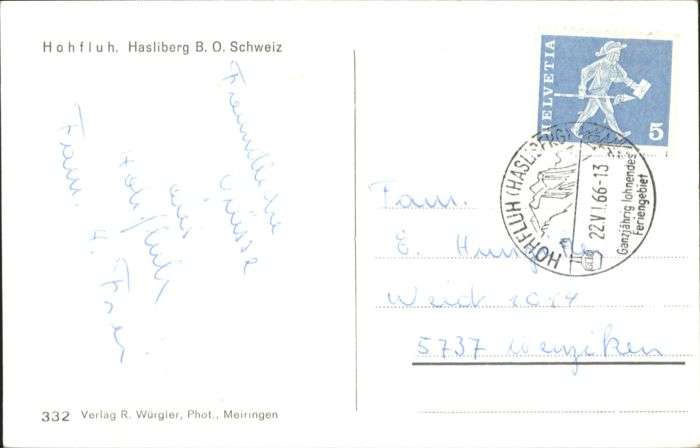 Hohfluh. Hasliberg B. O. Schweiz
Freundliche
Grüsse
aus
Hohfluh
Fam. H. Frei
HELVETIA
5
HOHFLUH (HASLIBERG)
22.VI.66-13
Ganzjährig lohnendes
Feriengebiet
Fam.
E.
Weid 1014
5737 Menziken
332 Verlag R. Würgler, Phot., Meiringen